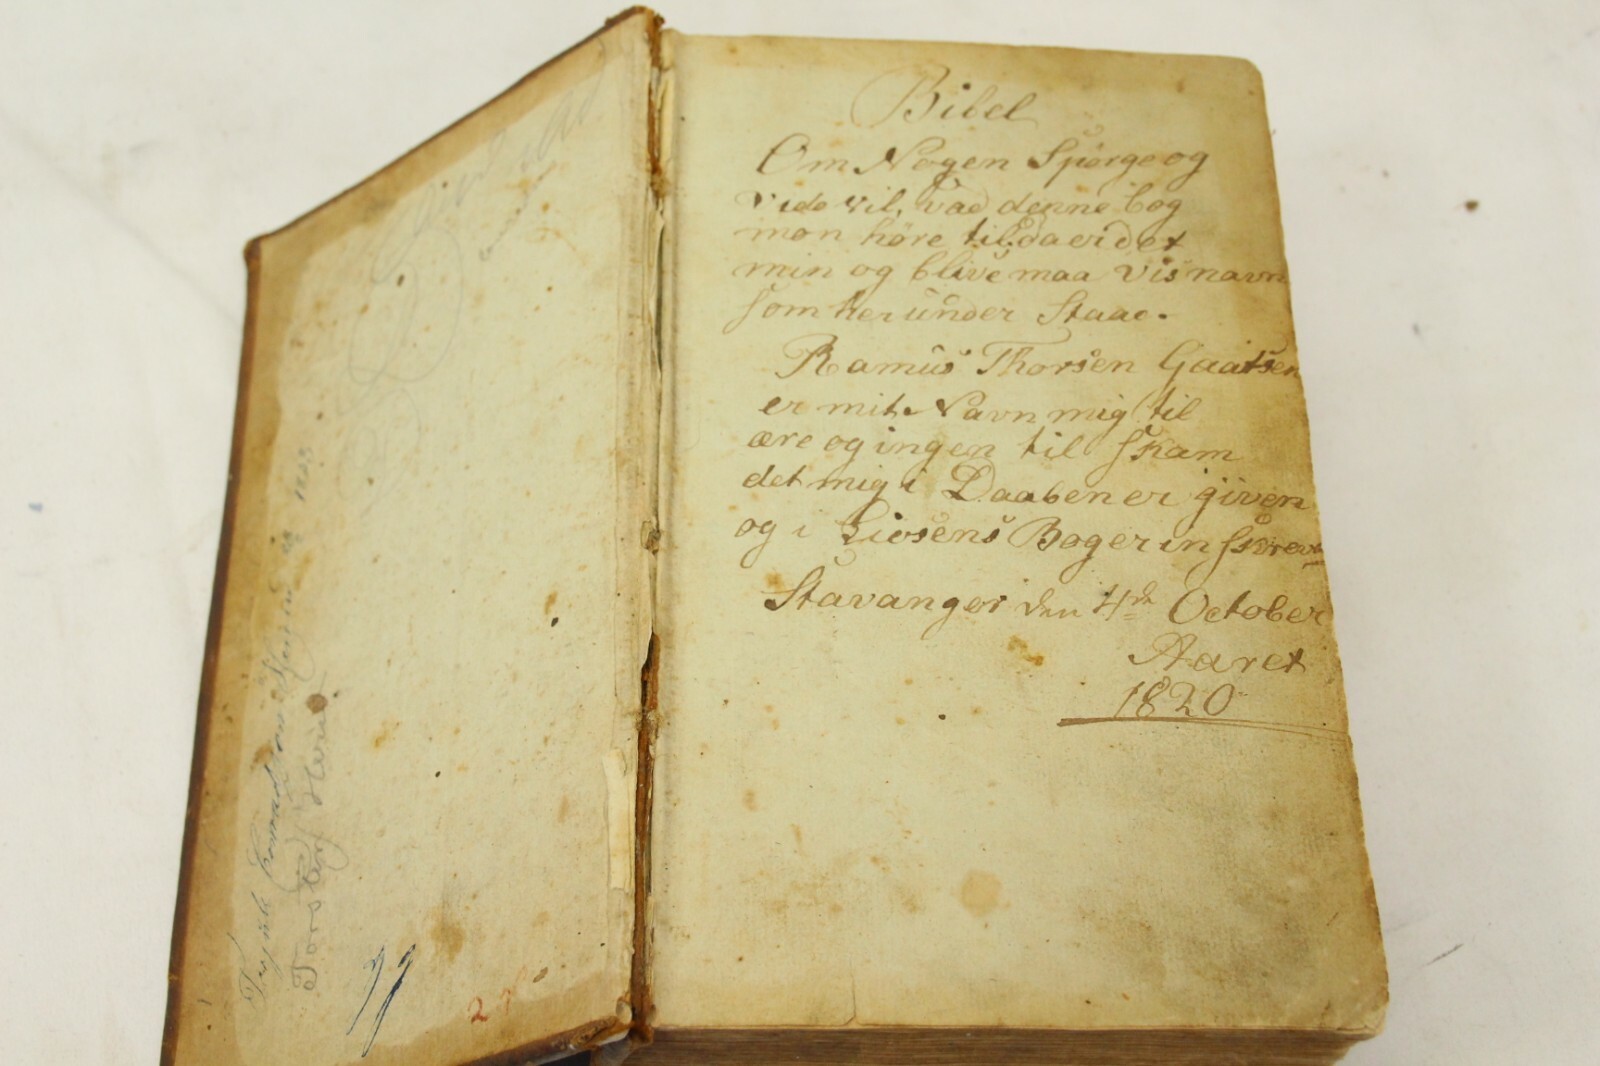 Bibel
Om Nogen Spörge og
vide vil, vad denne bog
mon höre til, da er det
min og blive maa vis navn
som her under Staae.
Ramus Thorsen Gaatsen
er mit Navn mig til
ære og ingen til skam
det mig i Daaben er given
og i Livsens Bog er inskrevn
Stavanger den 4de October
Aaret
1820
Torsten
79
27